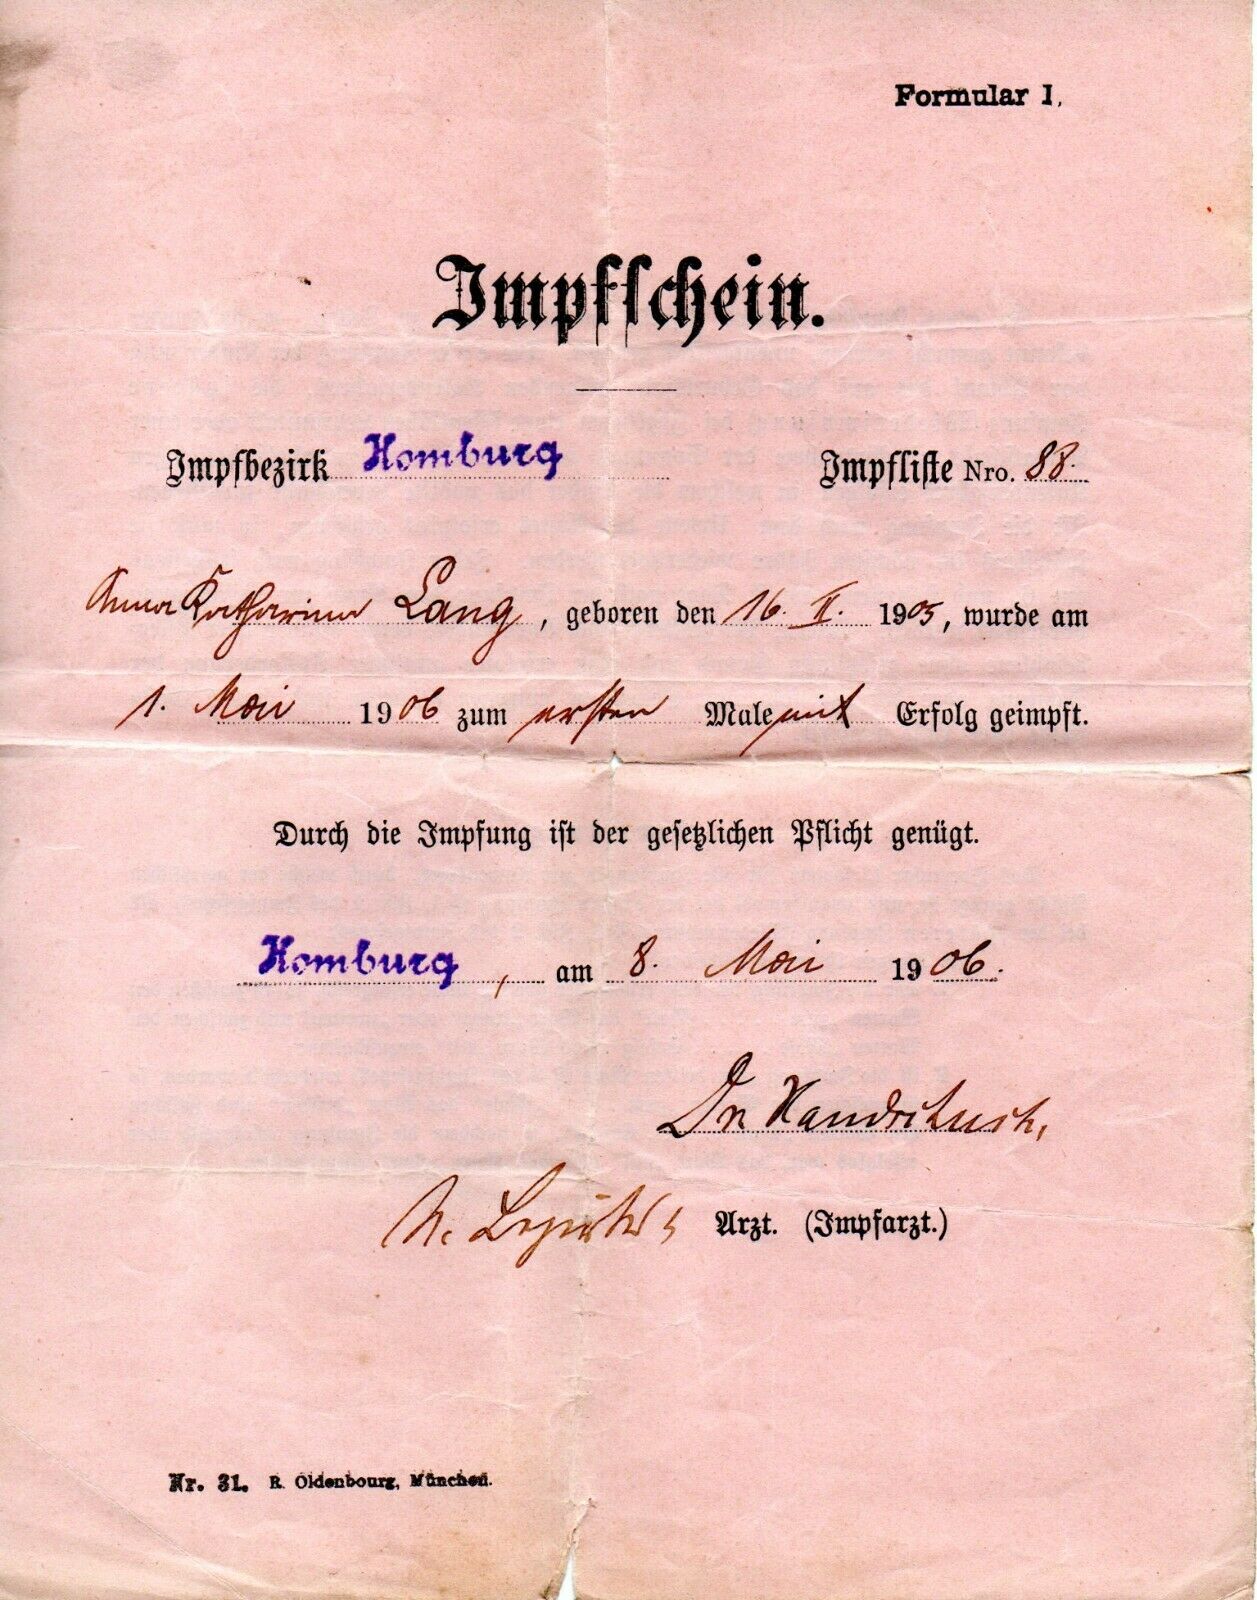 Formular 1.
Impfschein.
Impfbezirk Homburg Impfliste Nro. 88.
Anna Katharina Lang, geboren den 16. II. 1905, wurde am
1. Mai 1906 zum ersten Male mit Erfolg geimpft.
Durch die Impfung ist der gesetzlichen Pflicht genügt.
Homburg, am 8. Mai 1906.
Dr.
Arzt. (Impfarzt.)
Nr. 31. R. Oldenbourg, München.